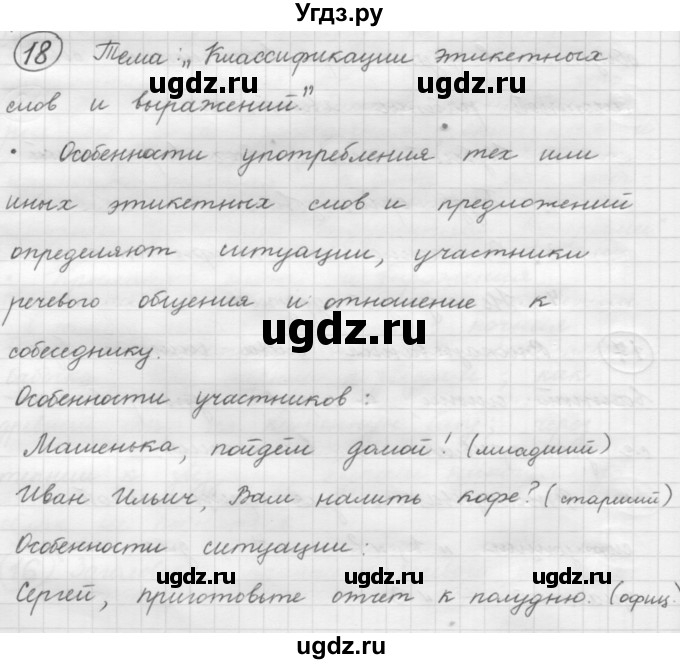 Угдз.ру
18 Тема: „Классификации этикетных
слов и выражений"
• Особенности употребления тех или
иных этикетных слов и предложений
определяют ситуации, участники
речевого общения и отношение к
собеседнику.
Особенности участников:
Машенька, пойдём домой! (младший)
Иван Ильич, Вам налить кофе? (старший)
Особенности ситуации:
Сергей, приготовьте отчет к полудню. (офиц.
ugdz.ru ugdz.ru
ugdz.ru
ugdz.ru ugdz.ru
ugdz.ru